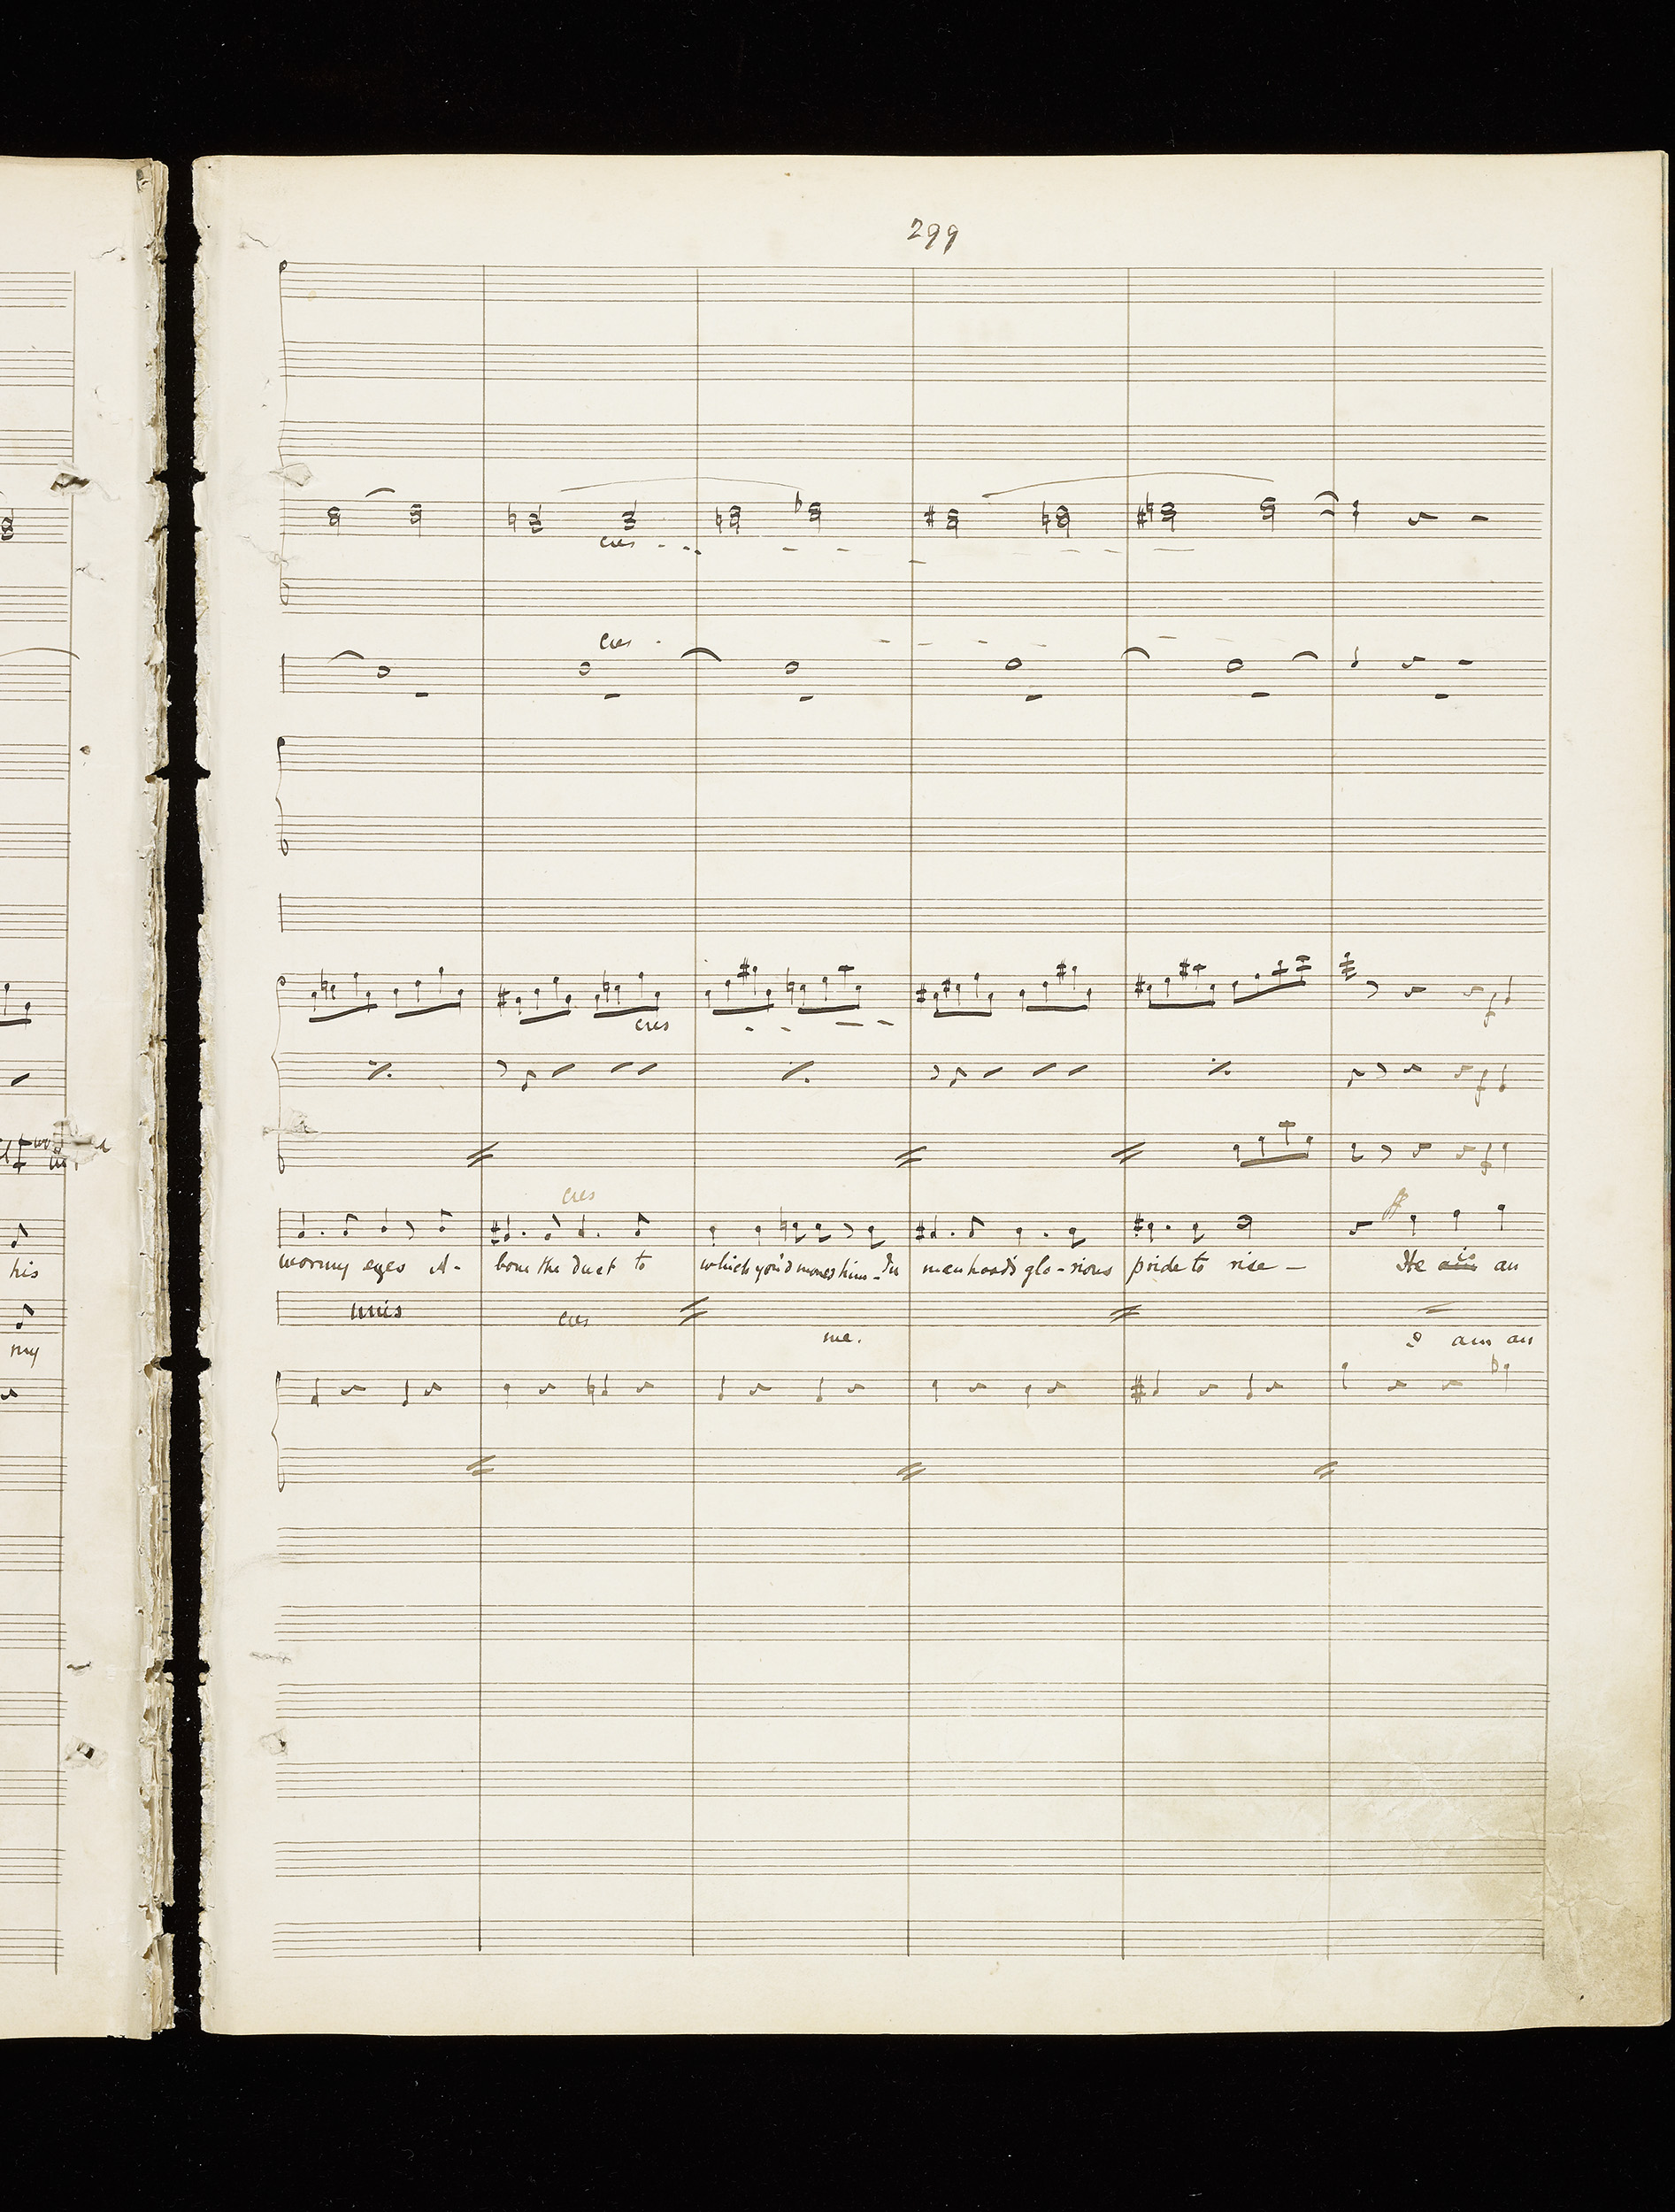 299
cres
cres
cres
cres
his
worny eyes A-
bove the dust to
which you'd moved him - In
manhood's glo - rious
pride to rise -
He is an
unis
cres
my
me.
I am an